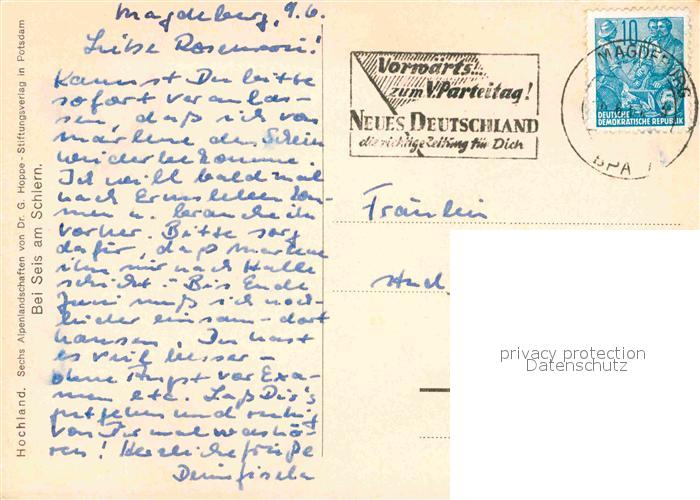 Magdeburg, 9.6.
Liebe Rosemarie!
Kannst Du bitte
sofort veranlas-
sen, daß ich von
Marlene den Schein
wiederbekomme.
Ich will bald mal
nach Ermsleben kom-
men u. brauche ihn
vorher. Bitte sorg
dafür, daß Marlene
ihn mir nach Halle
schickt. - Bis Ende
Juni muß ich noch
leider einsam dort
hausen. Du hast
es viel besser -
ohne Angst vor Exa-
men etc. Laß Dir's
gut gehen und ruhig
von Dir mal was hö-
ren! Herzliche Grüße
Deine Gisela
Hochland. Sechs Alpenlandschaften von Dr. G. Hoppe - Stiftungsverlag in Potsdam
Bei Seis am Schlern.
Vorwärts...
zum V. Parteitag!
NEUES DEUTSCHLAND
die richtige Zeitung für Dich
10
DEUTSCHE
DEMOKRATISCHE REPUBLIK
MAGDEBURG
BPA
Fräulein
privacy protection
Datenschutz